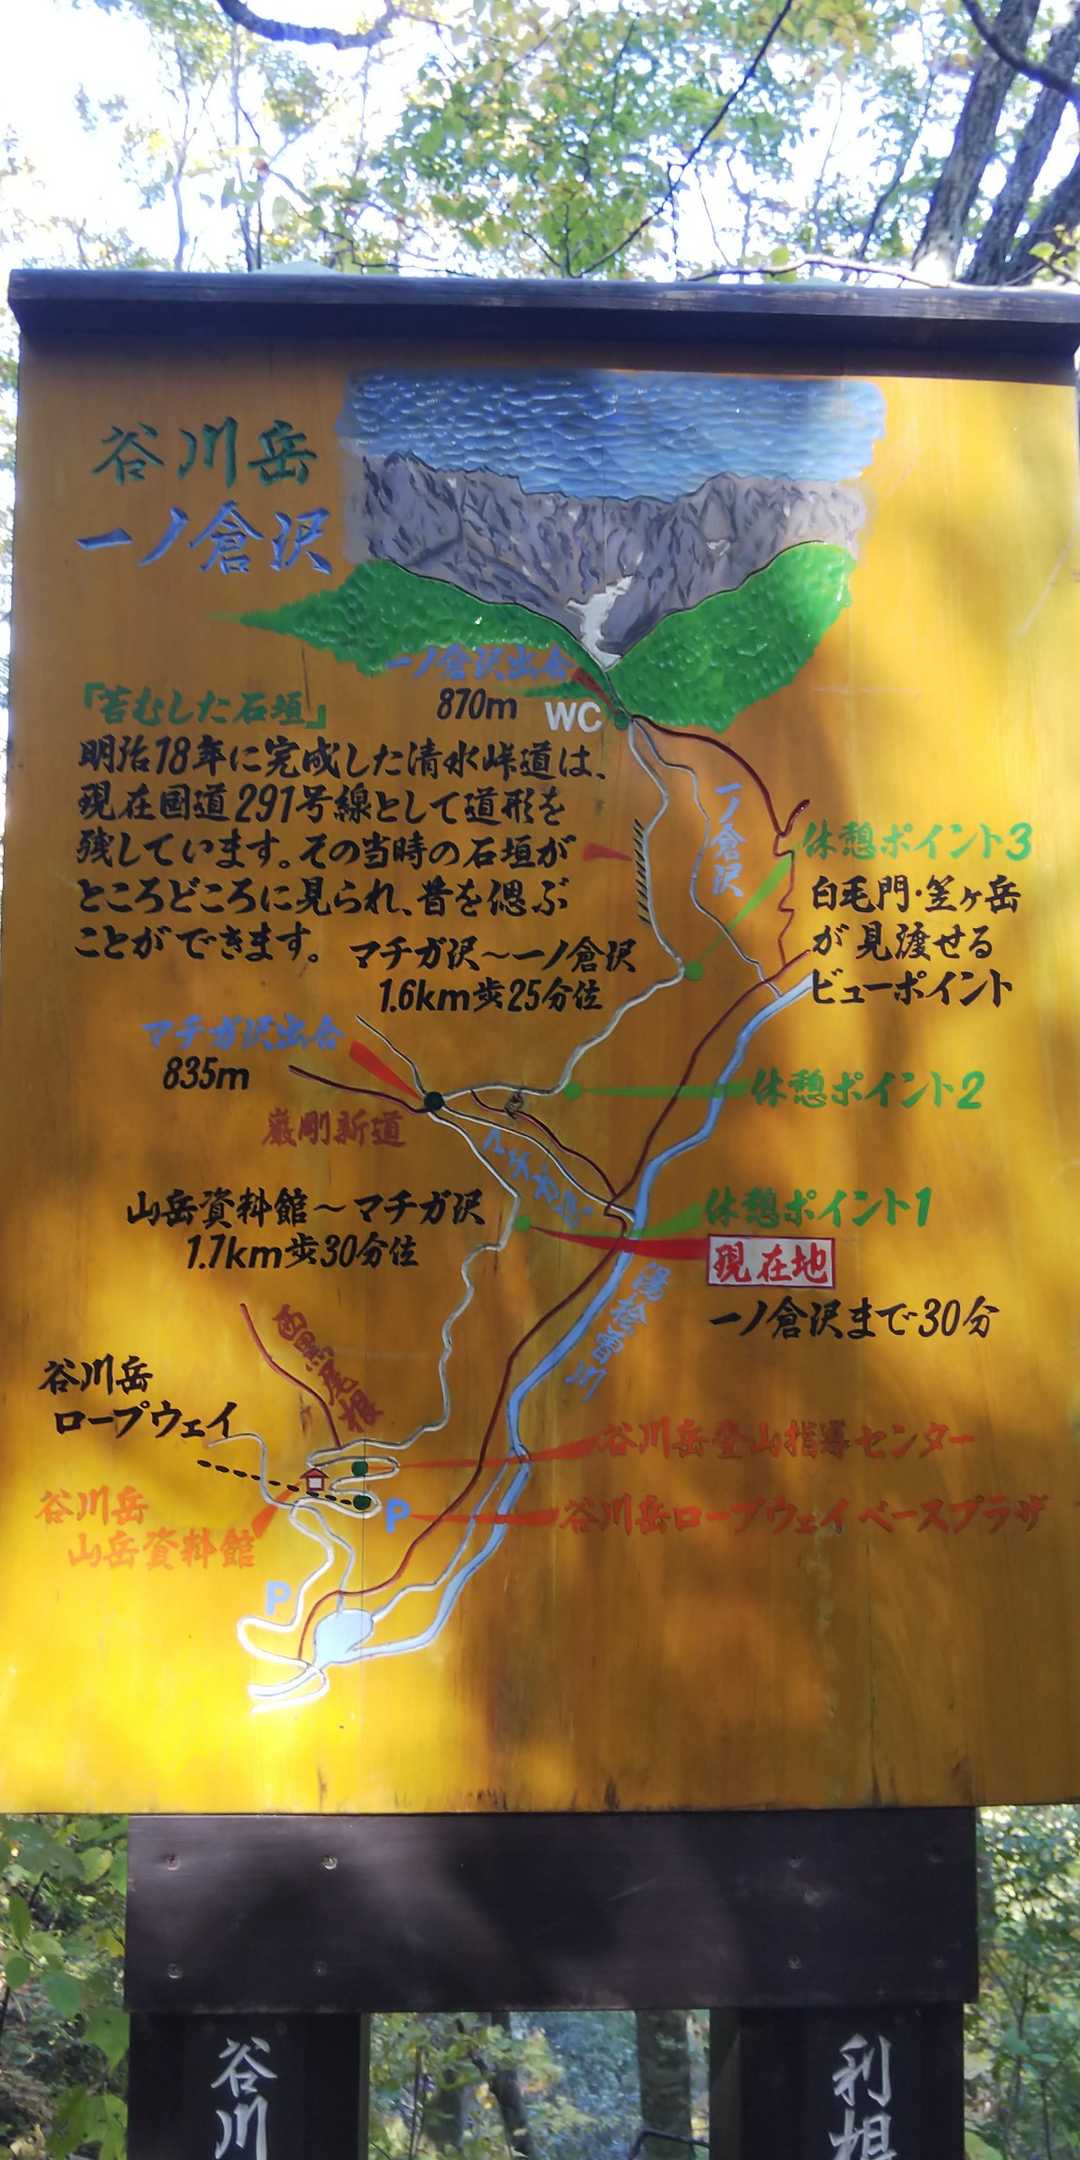 谷川岳
一ノ倉沢
一ノ倉沢出合
870m
WC
「苔むした石垣」
明治18年に完成した清水峠道は、
現在国道291号線として道形を
残しています。その当時の石垣が
ところどころに見られ、昔を偲ぶ
ことができます。
一ノ倉沢
休憩ポイント3
白毛門・笠ヶ岳
が見渡せる
ビューポイント
マチガ沢～一ノ倉沢
1.6km歩25分位
マチガ沢出合
835m
巌剛新道
休憩ポイント2
マチガ沢
山岳資料館～マチガ沢
1.7km歩30分位
休憩ポイント1
現在地
一ノ倉沢まで30分
湯桧曽川
西黒尾根
谷川岳
ロープウェイ
谷川岳登山指導センター
谷川岳
山岳資料館
P
谷川岳ロープウェイベースプラザ
P
谷川
利根